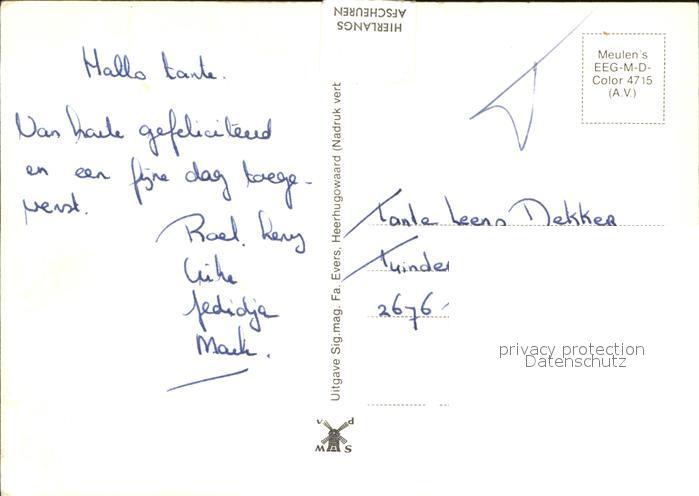 Hallo tante.
Van harte gefeliciteerd
en een fijne dag toege-
wenst.
Roel. Kerry
Jedidja
Mark.
HIERLANGS
AFSCHEUREN
Uitgave Sig.mag. Fa. Evers, Heerhugowaard (Nadruk vert
v d
M S
Meulen's
EEG-M-D-
Color 4715
(A.V.)
Tante Leens Dekker
Tuinder
2676
privacy protection
Datenschutz